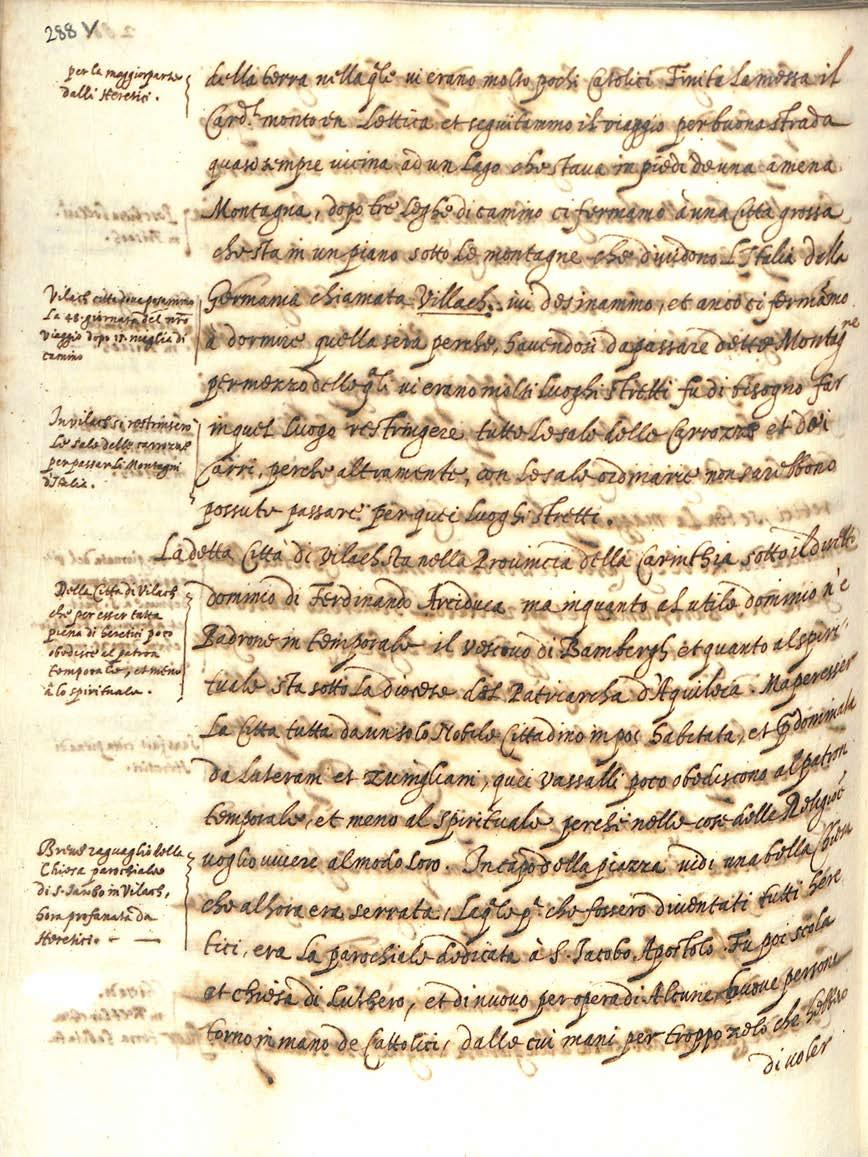 288 V
per la maggior parte
dalli Heretici.
della terra nella qle vi erano molto pochi Catolici. Finita la messa il
Card.l montò in Lettica et seguitammo il viaggio per buona strada
quasi sempre vicina ad un Lago che stava in piedi de una amena
Montagna, dopo tre leghe di camino ci fermamo à una Città grossa
che sta in un piano sotto le montagne che dividono L'Italia dalla
Vilach città dove posammo
La 48. giornata del nro
viaggio dopo 17. meglia di
camino
Germania chiamata Villach. ivi desinammo, et anco ci fermamo
à dormire quella sera perche, havendosi da passare dette Montagne
per mezzo delle qli vi erano molti luoghi stretti fu di bisogno far
In vilach si restrinsero
Le sale delle carrozze
per passar li Montagni
d'Italia.
in quel luogo restringere tutte le sale delle Carrozze et dei
Carri, perche altramente, con le sale ordinarie non sarebbono
possute passare per quei luoghi stretti.
La detta Città di Vilach sta nella Provincia della Carinthia sotto il diretto
Della Città di Vilach
che per esser tutta
piena di heretici poco
obedisce al patron
temporale, et meno
à lo spirituale.
dominio di Ferdinando Arciduca ma inquanto al utile dominio n'è
Padrone in temporale il vescovo di Bambergh et quanto al spiri-
tuale sta sotto la diocese del Patriarcha d'Aquileia. Ma per esser
La Città tutta da un solo Nobile Cittadino in poi habitata, et dominata
da Luterani et Zuingliani, quei vassalli poco obediscono al patron
temporale, et meno al spirituale perche nelle cose delle Religioē
Breve raguaglio della
Chiesa parochiale
di S. Jacobo in Vilach,
hora profanata da
Heretici.
voglio vivere al modo loro. In capo della piazza vidi una bella
che alhora era serrata, La qle pa. che fossero diventati tutti here
tici, era La parochiale dedicata à S. Jacobo Apostolo. Fu poi scola
et chiesa di Luthero, et di nuovo per opera di Alcune buone persone
torno in mano de Cattolici, dalle cui mani per troppo zelo che hebbero
di voler